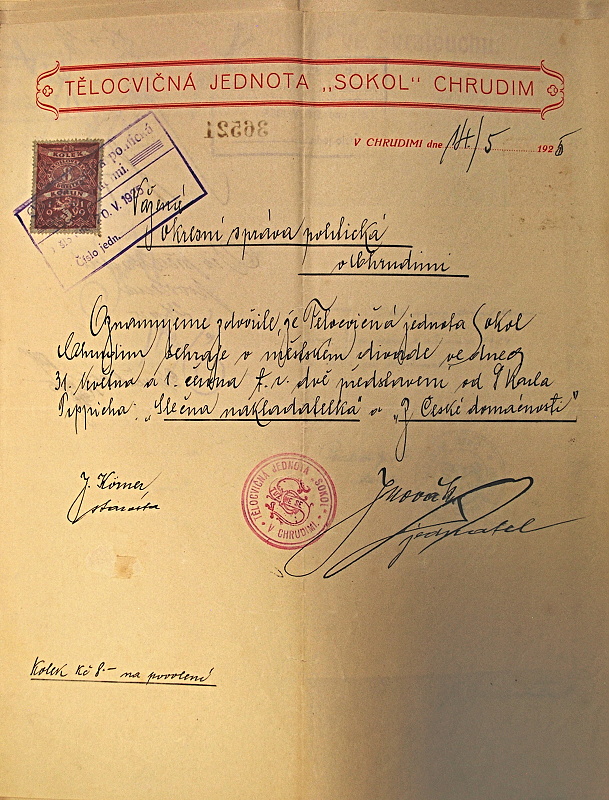 TĚLOCVIČNÁ JEDNOTA „SOKOL" CHRUDIM
36521
V CHRUDIMI dne 14/5 1925
KOLEK
8
KORUN
politická
V. 1925
Číslo jedn.
Vážené
Okresní správa politická
v Chrudimi
Oznamujeme zdvořile, že Tělocvičná jednota Sokol
Chrudim sehraje v městském divadle ve dnech
31. května a 1. června t. r. dvě představení od Karla
Pippicha: „Slečna nakladatelka" a „Z České domácnosti"
J. Körner
starosta
TĚLOCVIČNÁ JEDNOTA „SOKOL"
V CHRUDIMI.
J Novák
jednatel
Kolek Kč 8.- na povolení